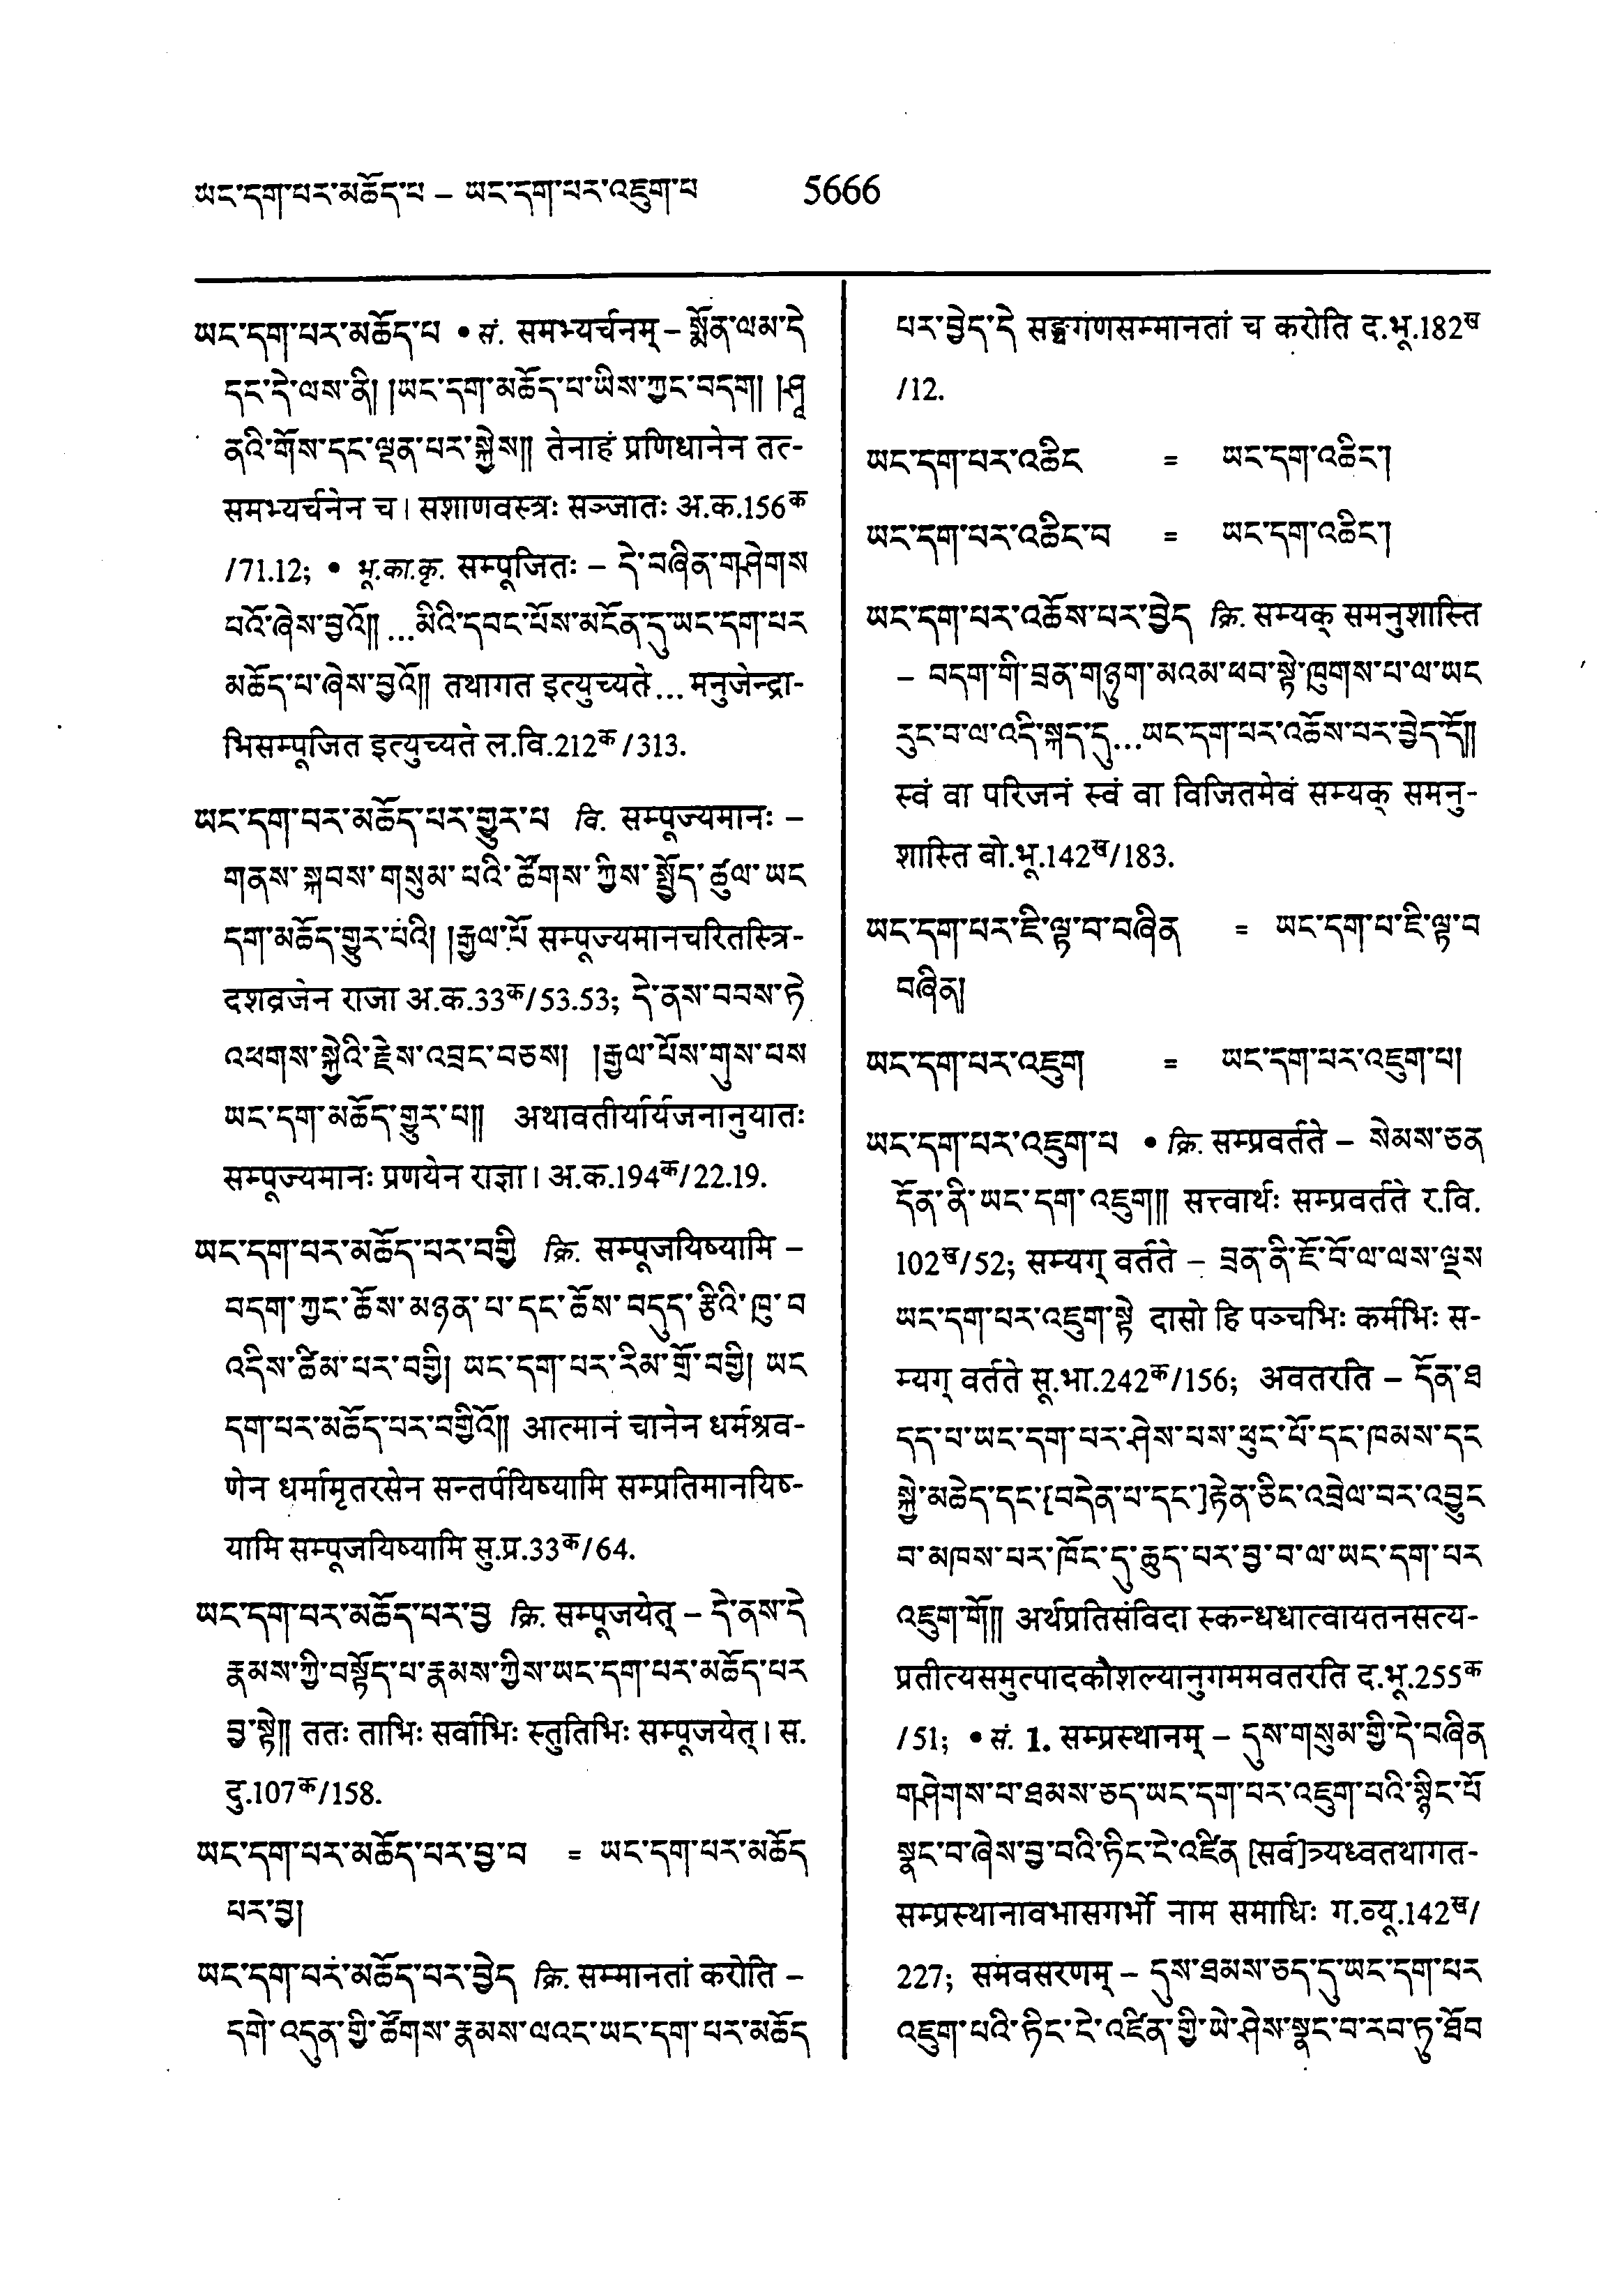 ཡང་དག་པར་མཆོད་པ – ཡང་དག་པར་འཇུག་པ 5666
ཡང་དག་པར་མཆོད་པ • सं. समभ्यर्चनम् – སྨོན་ལམ་དེ
དང་དེ་ལས་ནི། །ཡང་དག་མཆོད་པ་ཡིས་ཀྱང་བདག། །ཤཱ
ནའི་གོས་དང་ལྡན་པར་སྐྱེས།། तेनाहं प्रणिधानेन तत्-
समभ्यर्चनेन च। सशाणवस्त्रः सञ्जातः अ.क.156क
/71.12; • भू.का.कृ. सम्पूजितः – དེ་བཞིན་གཤེགས
པའོ་ཞེས་བྱའོ།། ...མིའི་དབང་པོས་མངོན་དུ་ཡང་དག་པར
མཆོད་པ་ཞེས་བྱའོ།། तथागत इत्युच्यते... मनुजेन्द्रा-
भिसम्पूजित इत्युच्यते ल.वि.212क/313.
ཡང་དག་པར་མཆོད་པར་གྱུར་པ वि. सम्पूज्यमानः –
གནས་སྐབས་གསུམ་པའི་ཚོགས་ཀྱིས་སྤྱོད་ཚུལ་ཡང
དག་མཆོད་གྱུར་པའི། །རྒྱལ་པོ सम्पूज्यमानचरितस्त्रि-
दशव्रजेन राजा अ.क.33क/53.53; དེ་ནས་བབས་ཏེ
འཕགས་སྐྱེའི་རྗེས་འབྲང་བཅས། །རྒྱལ་པོས་གུས་པས
ཡང་དག་མཆོད་གྱུར་པ།། अथावतीर्यार्यजनानुयातः
सम्पूज्यमानः प्रणयेन राज्ञा। अ.क.194क/22.19.
ཡང་དག་པར་མཆོད་པར་བགྱི क्रि. सम्पूजयिष्यामि –
བདག་ཀྱང་ཆོས་མཉན་པ་དང་ཆོས་བདུད་རྩིའི་ཁུ་བ
འདིས་ཚིམ་པར་བགྱི། ཡང་དག་པར་རིམ་གྲོ་བགྱི། ཡང
དག་པར་མཆོད་པར་བགྱིའོ།། आत्मानं चानेन धर्मश्रव-
णेन धर्मामृतरसेन सन्तर्पयिष्यामि सम्प्रतिमानयिष-
यामि सम्पूजयिष्यामि सु.प्र.33क/64.
ཡང་དག་པར་མཆོད་པར་བྱ क्रि. सम्पूजयेत् – དེ་ནས་དེ
རྣམས་ཀྱི་བསྟོད་པ་རྣམས་ཀྱིས་ཡང་དག་པར་མཆོད་པར
བྱ་སྟེ།། ततः ताभिः सर्वाभिः स्तुतिभिः सम्पूजयेत्। स.
दु.107क/158.
ཡང་དག་པར་མཆོད་པར་བྱ་བ = ཡང་དག་པར་མཆོད
པར་བྱ།
ཡང་དག་པར་མཆོད་པར་བྱེད क्रि. सम्मानतां करोति –
དགེ་འདུན་གྱི་ཚོགས་རྣམས་ལའང་ཡང་དག་པར་མཆོད
པར་བྱེད་དེ सङ्घगणसम्मानतां च करोति द.भू.182ख
/12.
ཡང་དག་པར་འཆིང = ཡང་དག་འཆིང་།
ཡང་དག་པར་འཆིང་བ = ཡང་དག་འཆིང་།
ཡང་དག་པར་འཆོས་པར་བྱེད क्रि. सम्यक् समनुशास्ति
– བདག་གི་བྲན་གཉུག་མའམ་ཕབ་སྟེ་ཁུགས་པ་ལ་ཡང
རུང་བ་ལ་འདི་སྐད་དུ...ཡང་དག་པར་འཆོས་པར་བྱེད་དོ།།
स्वं वा परिजनं स्वं वा विजितमेवं सम्यक् समनु-
शास्ति बो.भू.142ख/183.
ཡང་དག་པར་ཇི་ལྟ་བ་བཞིན = ཡང་དག་པ་ཇི་ལྟ་བ
བཞིན།
ཡང་དག་པར་འཇུག = ཡང་དག་པར་འཇུག་པ།
ཡང་དག་པར་འཇུག་པ • क्रि. सम्प्रवर्तते – སེམས་ཅན
དོན་ནི་ཡང་དག་འཇུག།། सत्त्वार्थः सम्प्रवर्तते र.वि.
102ख/52; सम्यग् वर्तते – བྲན་ནི་ཇོ་བོ་ལ་ལས་ལྔས
ཡང་དག་པར་འཇུག་སྟེ दासो हि पञ्चभिः कर्मभिः स-
म्यग् वर्तते सू.भा.242क/156; अवतरति – དོན་ཐ
དད་པ་ཡང་དག་པར་ཤེས་པས་ཕུང་པོ་དང་ཁམས་དང
སྐྱེ་མཆེད་དང་[བདེན་པ་དང་]རྟེན་ཅིང་འབྲེལ་བར་འབྱུང
བ་མཁས་པར་ཁོང་དུ་ཆུད་པར་བྱ་བ་ལ་ཡང་དག་པར
འཇུག་གོ།། अर्थप्रतिसंविदा स्कन्धधात्वायतनसत्य-
प्रतीत्यसमुत्पादकौशल्यानुगममवतरति द.भू.255क
/51; • सं. 1. सम्प्रस्थानम् – དུས་གསུམ་གྱི་དེ་བཞིན
གཤེགས་པ་ཐམས་ཅད་ཡང་དག་པར་འཇུག་པའི་སྙིང་པོ
སྣང་བ་ཞེས་བྱ་བའི་ཏིང་ངེ་འཛིན [सर्व]त्र्यध्वतथागत-
सम्प्रस्थानावभासगर्भो नाम समाधिः ग.व्यू.142ख/
227; समवसरणम् – དུས་ཐམས་ཅད་དུ་ཡང་དག་པར
འཇུག་པའི་ཏིང་ངེ་འཛིན་གྱི་ཡེ་ཤེས་སྣང་བ་རབ་ཏུ་ཐོབ